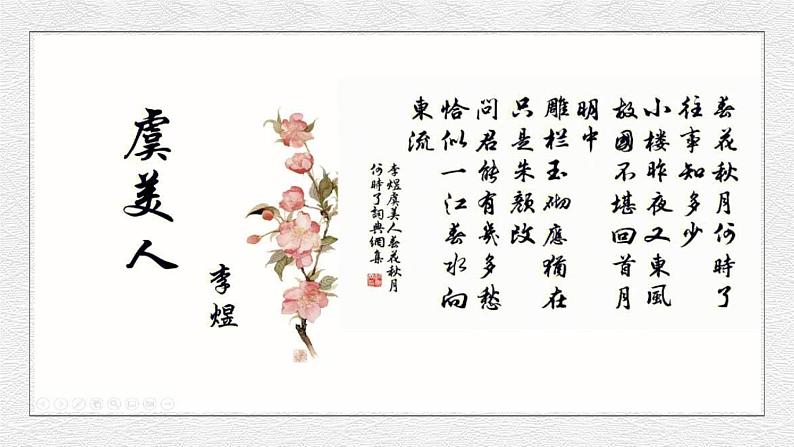 虞美人
李煜
春花秋月何時了
往事知多少
小樓昨夜又東風
故國不堪回首月
明中
雕栏玉砌應猶在
只是朱顏改
問君能有幾多愁
恰似一江春水向
東流
李煜虞美人春花秋月
何時了詞典網集